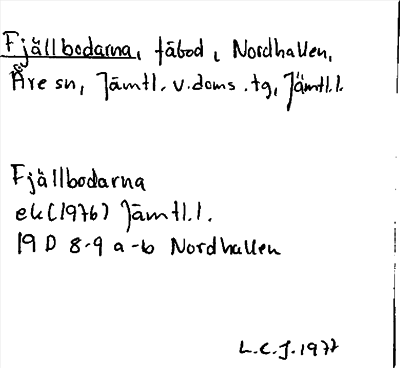 Fjällbodarna, fäbod, Nordhallen,
Åre sn, Jämtl. v. doms. tg, Jämtl.l.
Fjällbodarna
ek (1976) Jämtl.l.
19 D 8-9 a-b Nordhallen
L.C.J. 1977